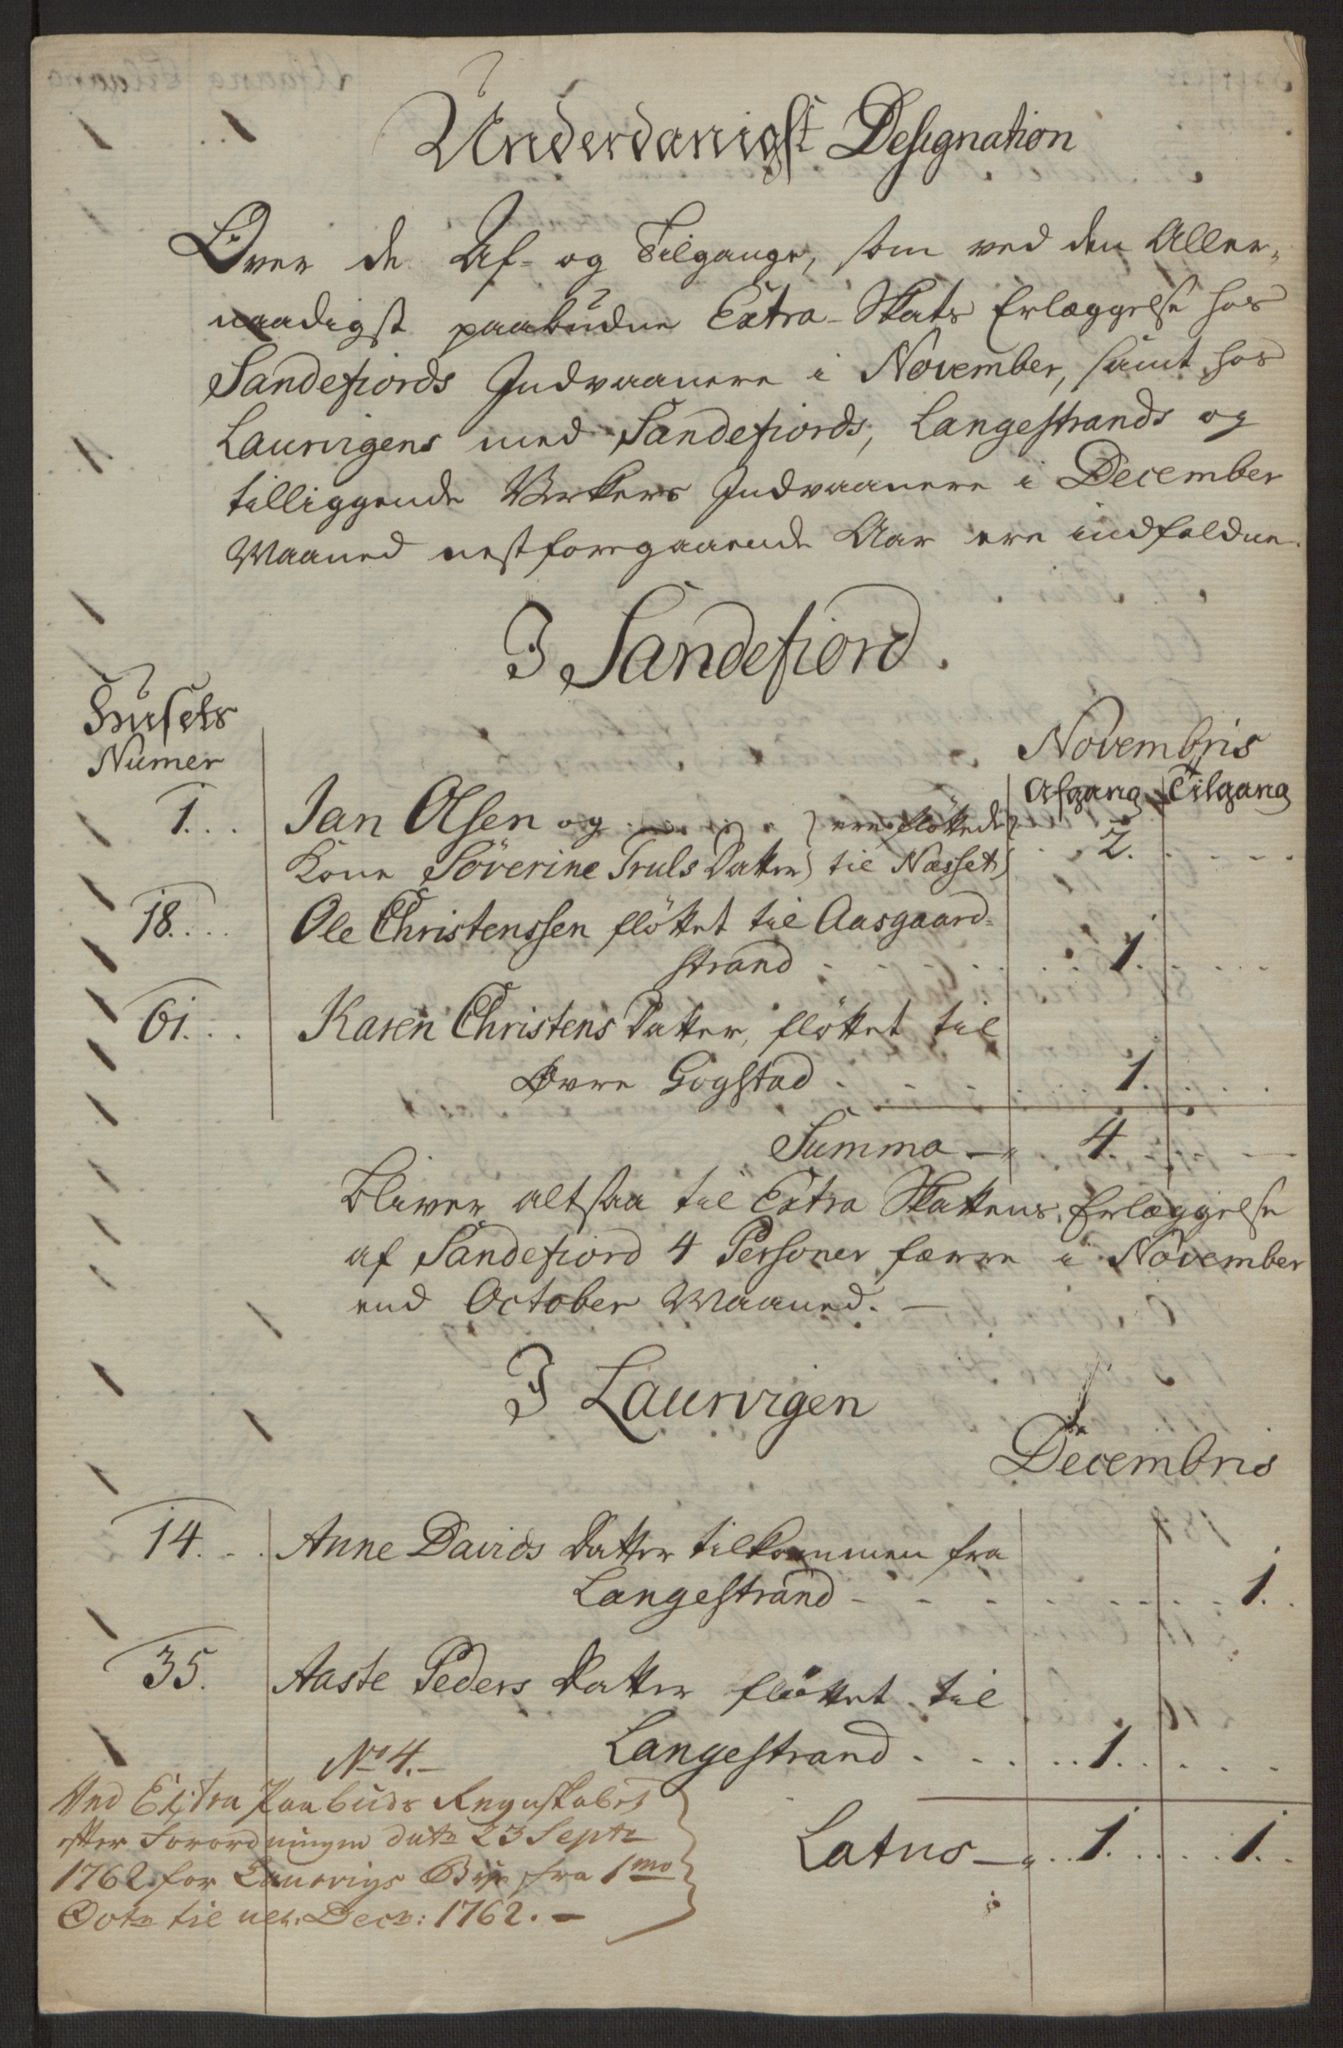 Underdanigst Designation
Over de Af- og Tilgange, som ved den Aller-
naadigst paabudne Extra-Skats Erlæggelse hos
Sandefiords Indvaanere i November, samt hos
Laurvigens med Sandefiords, Langestrands og
tilliggende Verkers Indvaanere i December
Maaned nestforegaaende Aar ere indfaldne.
I Sandefiord.
Husets
Numer
Novembris
Afgang Tilgang
1. Jan Olsen og } ere fløttede
Kone Söverine Truls Datter } til Næsset } 2.
18. Ole Christenssen fløttet til Aasgaard-
strand 1.
61. Karen Christens Datter, fløttet til
Øvre Gogstad 1.
Summa 4.
Bliver altsaa til Extra Skattens Erlæggelse
af Sandefiord 4 Personer færre i November
end October Maaned.
I Laurvigen
Decembris
14. Anne Davids Datter tilkommen fra
Langestrand 1.
35. Aaste Peders Datter fløttet til
Langestrand 1.
No 4.
Ved Extra Paabuds Regnskabet
efter Forordningen dato 23 Septr
1762 for Laurvigs Bye fra 1mo
Octr til ult. Decr: 1762.
Latus 1. 1.